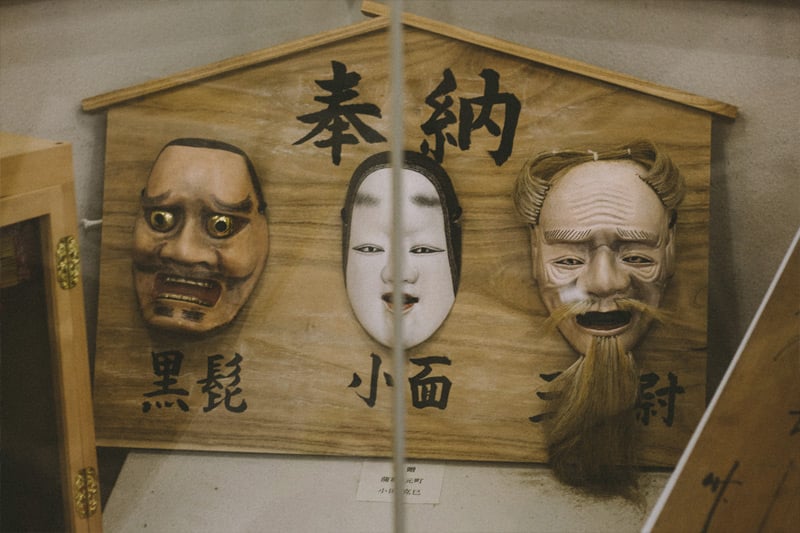 奉納
黒髭 小面 三 尉
贈
元町
小